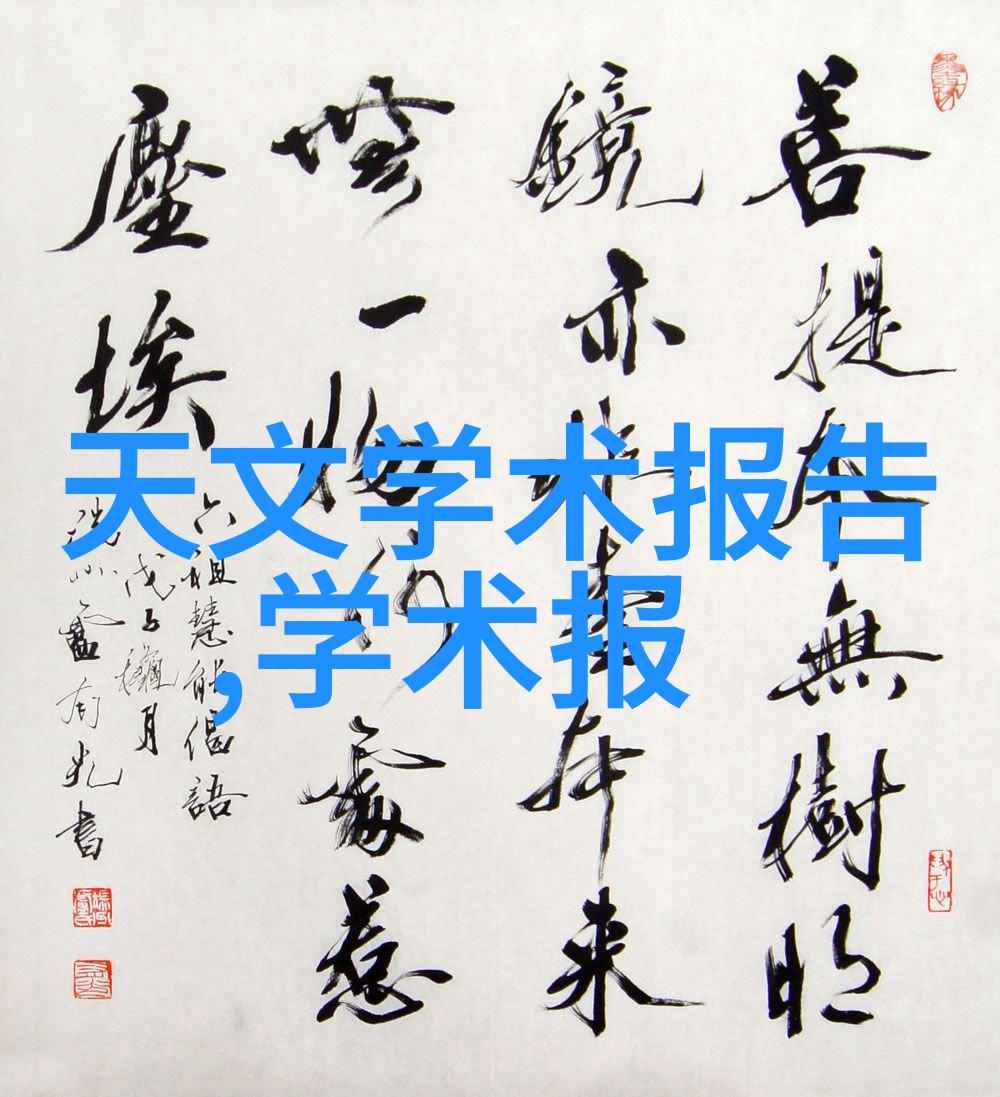 菩提本無樹明
鏡亦非臺本来
無一物何處惹
塵埃
六祖慧能偈語
戊子穐月
盧有光書
天文学术报告
,学术报